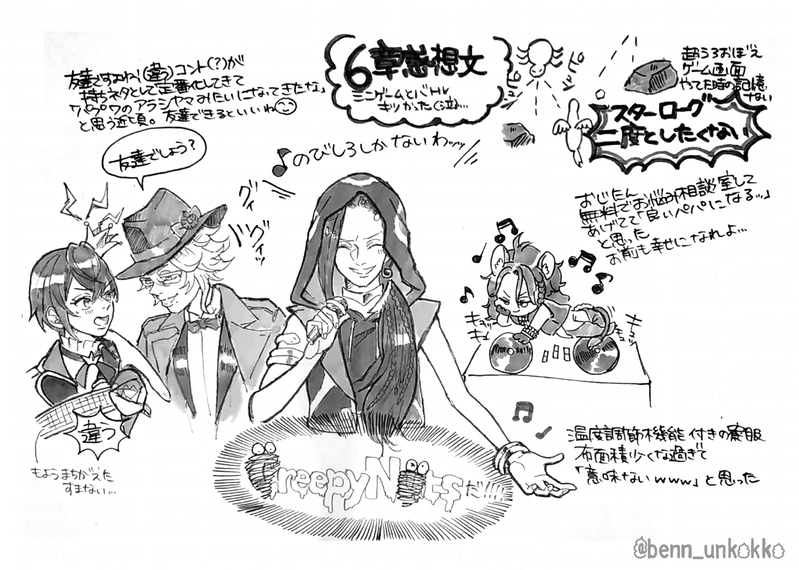 友達ですよね?(違う)コント(?)が
持ちネタとして定番化してきて
パプワのアラシヤマみたいになってきたな」
と思う近頃。友達できるといいね
友達でしょう?
違う
もようまちがえた
すまない…
6章感想文
ミニゲームとバトル
キツかった(泣)…
♪のびしろしかないわッッ
グイ
グイッ
超うろおぼえ
ゲーム画面
やってた時の記憶
ない
スターローグ
二度としたくない
おじたん
無料でお悩み相談室して
あげてて「良いパパになるッ…」
と思った
お前も幸せになれよ…
キュッ
キュ
CreepyNutsだ!!!!
温度調節機能付きの寮服
布面積少くな過ぎて
「意味ないwww」と思った
@benn_unkokko